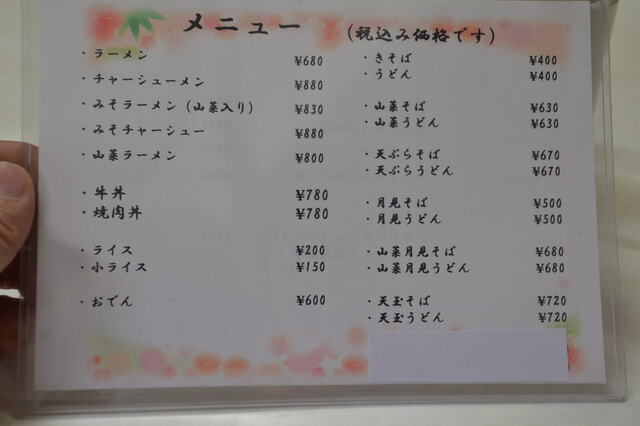 メニュー (税込み価格です)
・ラーメン ¥680
・チャーシューメン ¥880
・みそラーメン(山菜入り) ¥830
・みそチャーシュー ¥880
・山菜ラーメン ¥800
・牛丼 ¥780
・焼肉丼 ¥780
・ライス ¥200
・小ライス ¥150
・おでん ¥600
・きそば ¥400
・うどん ¥400
・山菜そば ¥630
・山菜うどん ¥630
・天ぷらそば ¥670
・天ぷらうどん ¥670
・月見そば ¥500
・月見うどん ¥500
・山菜月見そば ¥680
・山菜月見うどん ¥680
・天玉そば ¥720
・天玉うどん ¥720